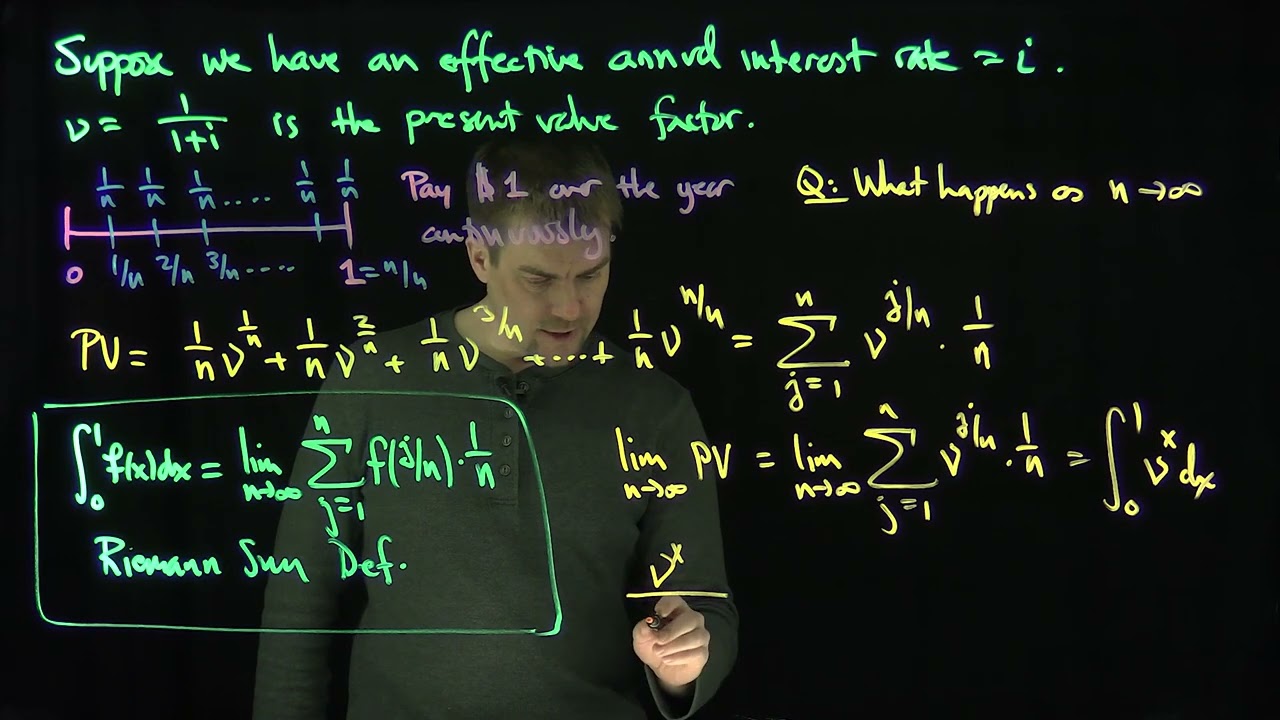 Suppose we have an effective annual interest rate = i.
v = 1/(1+i) is the present value factor.
1/n 1/n 1/n .... 1/n 1/n
0 1/n 2/n 3/n .... 1 = n/n
Pay $1 over the year
continuously.
Q: What happens as n→∞
PV = 1/n v^(1/n) + 1/n v^(2/n) + 1/n v^(3/n) + .... + 1/n v^(n/n) = ∑_{j=1}^{n} v^(j/n) · 1/n
∫_0^1 f(x)dx = lim_{n→∞} ∑_{j=1}^{n} f(j/n) · 1/n
Riemann Sum Def.
lim_{n→∞} PV = lim_{n→∞} ∑_{j=1}^{n} v^(j/n) · 1/n = ∫_0^1 v^x dx
v^x